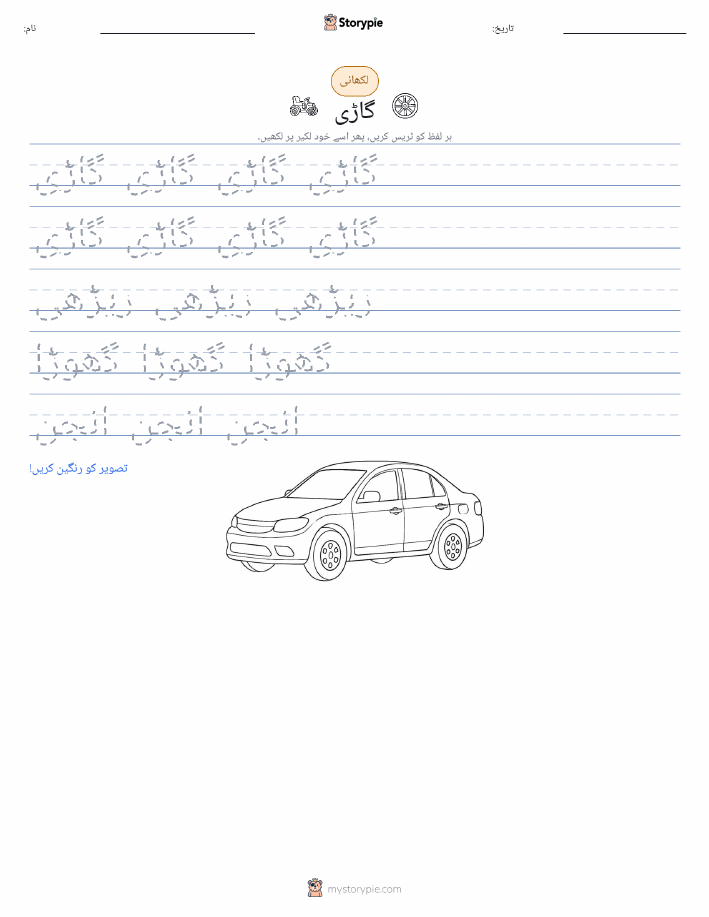 Storypie
نام:
تاریخ:
لکھائی
گاڑی
ہر لفظ کو ٹریس کریں، پھر اسے خود لکیر پر لکھیں۔
گاڑی گاڑی گاڑی گاڑی
گاڑی گاڑی گاڑی گاڑی
ریڑھی ریڑھی ریڑھی
گھوڑا گھوڑا گھوڑا
انجن انجن انجن
تصویر کو رنگین کریں!
mystorypie.com